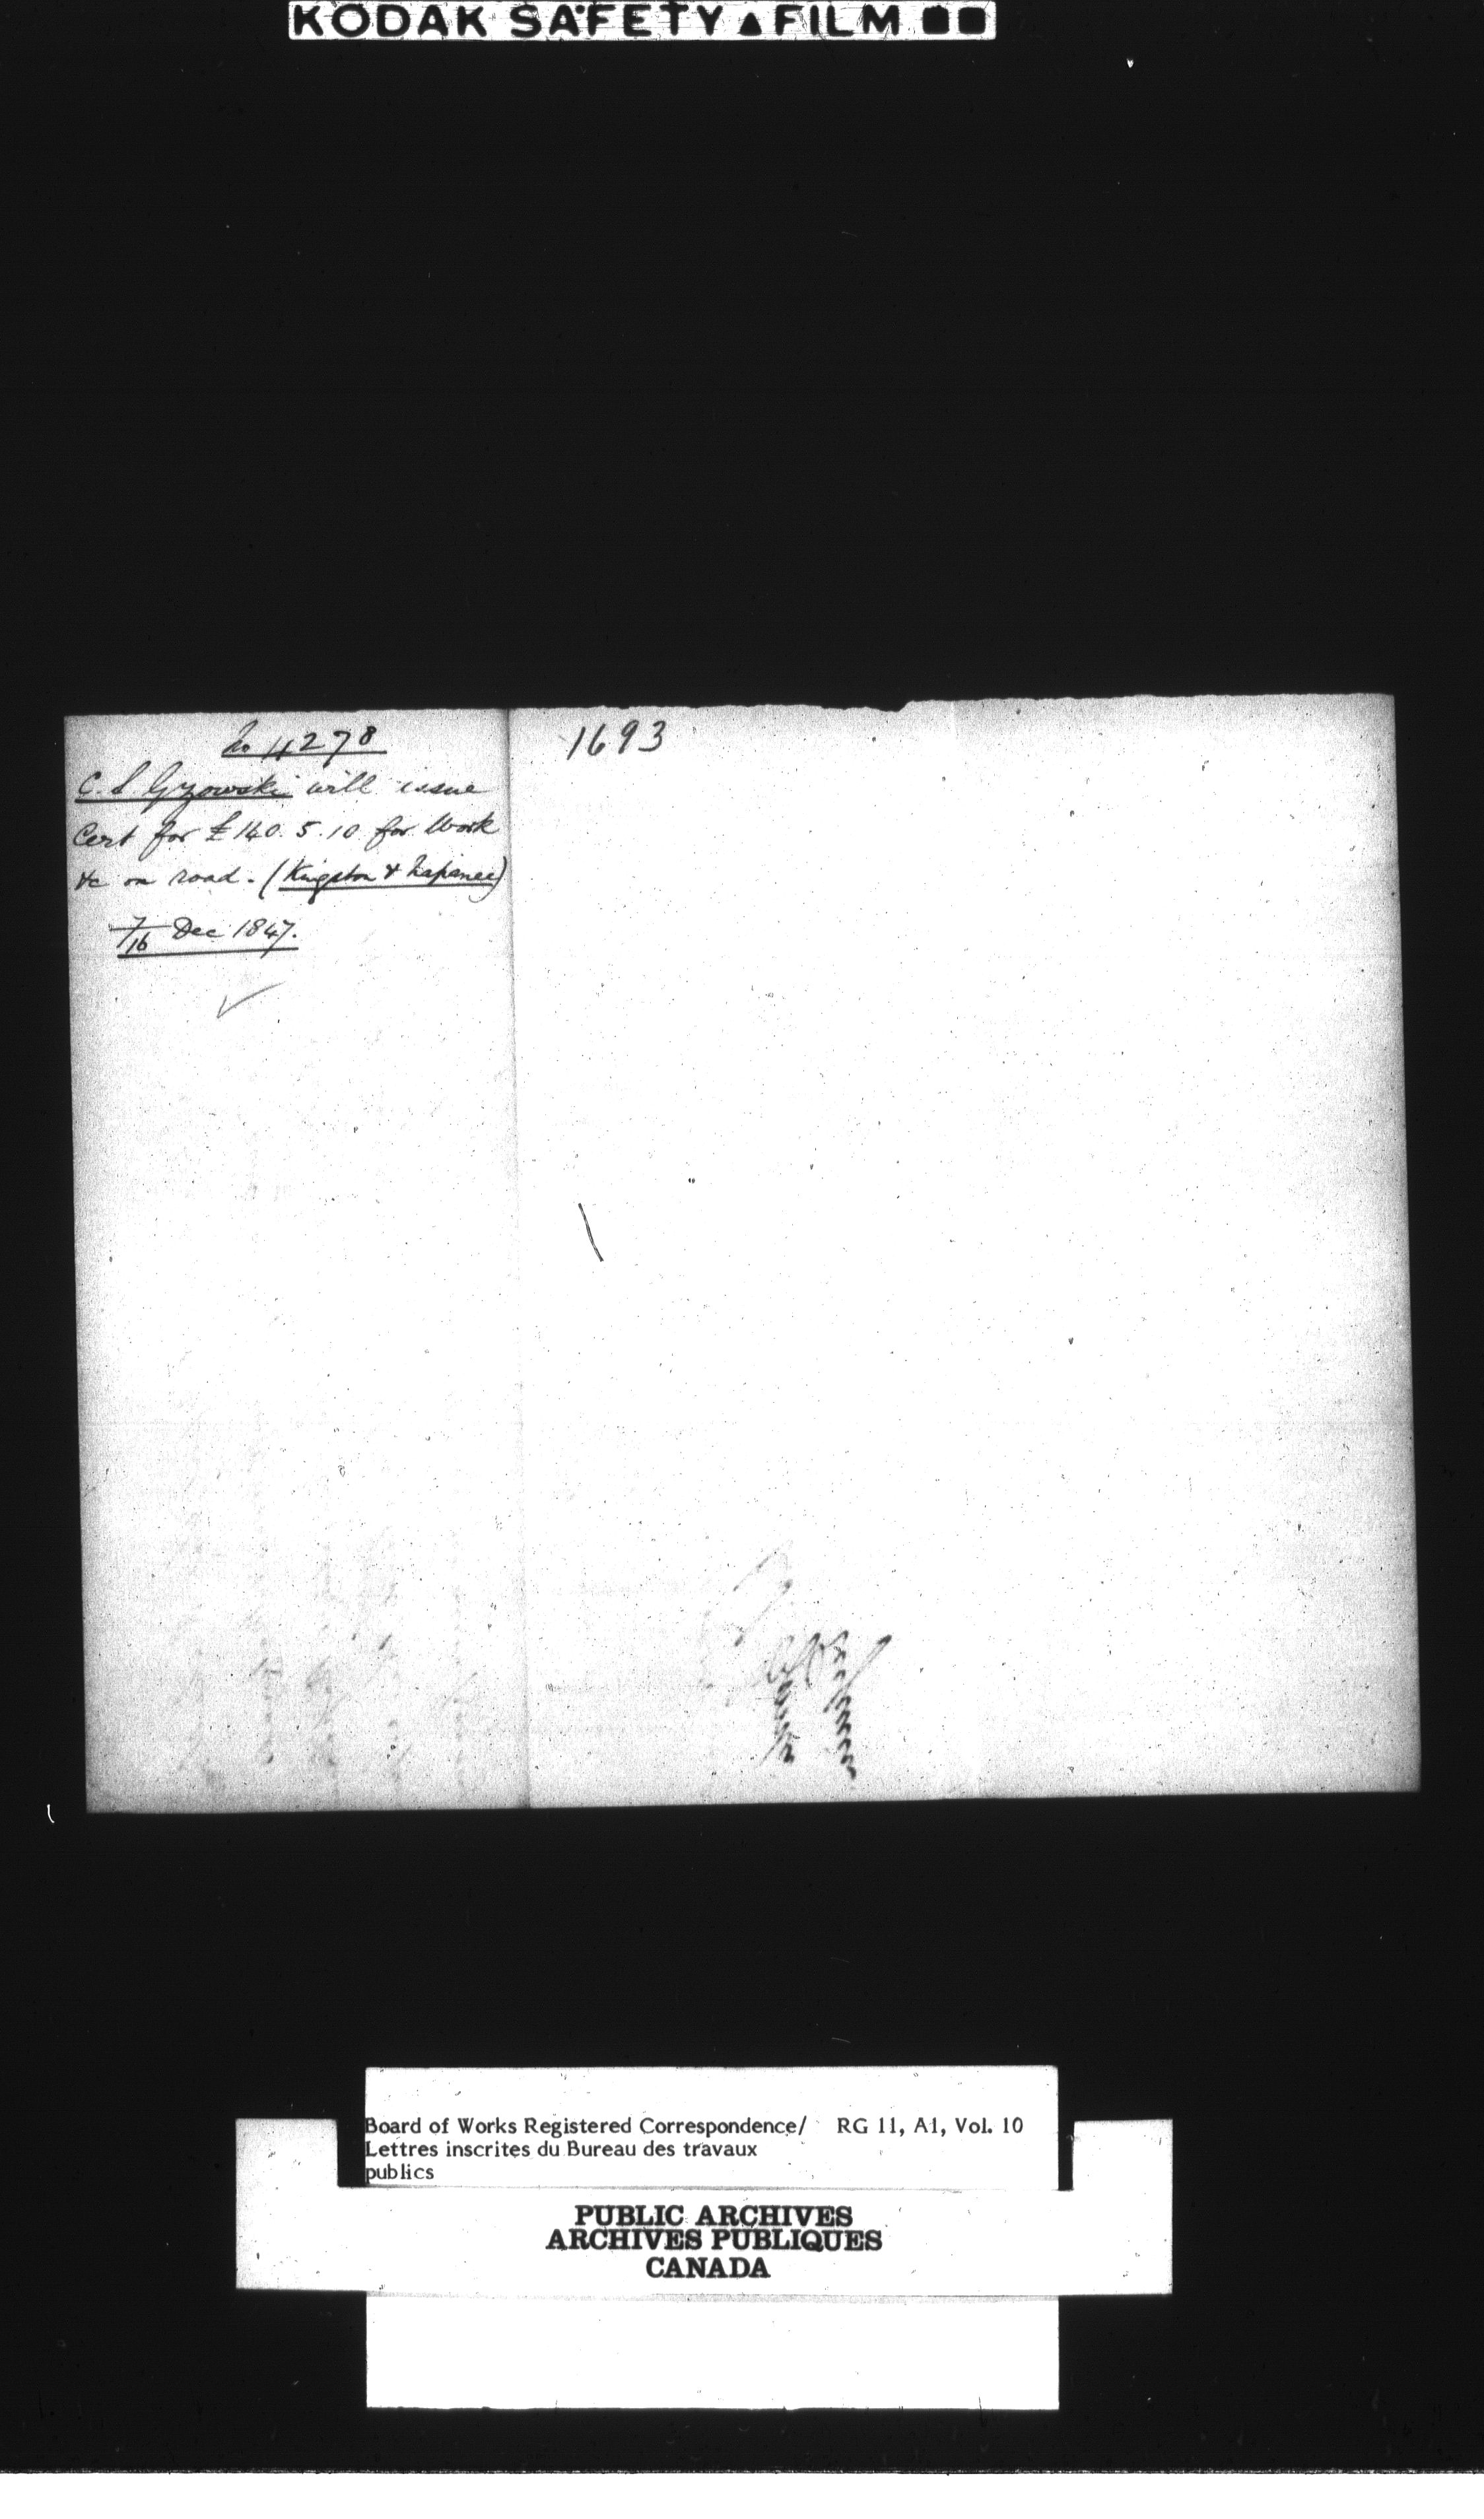 KODAK SAFETY ▲ FILM ■■
No 4278
C. S Gzowski will issue
Cert for £140.5.10 for Work
&c on road. (Kingston & Napanee)
7/16 Dec 1847.
✓
1693
Board of Works Registered Correspondence/ RG 11, A1, Vol. 10
Lettres inscrites du Bureau des travaux
publics
PUBLIC ARCHIVES
ARCHIVES PUBLIQUES
CANADA